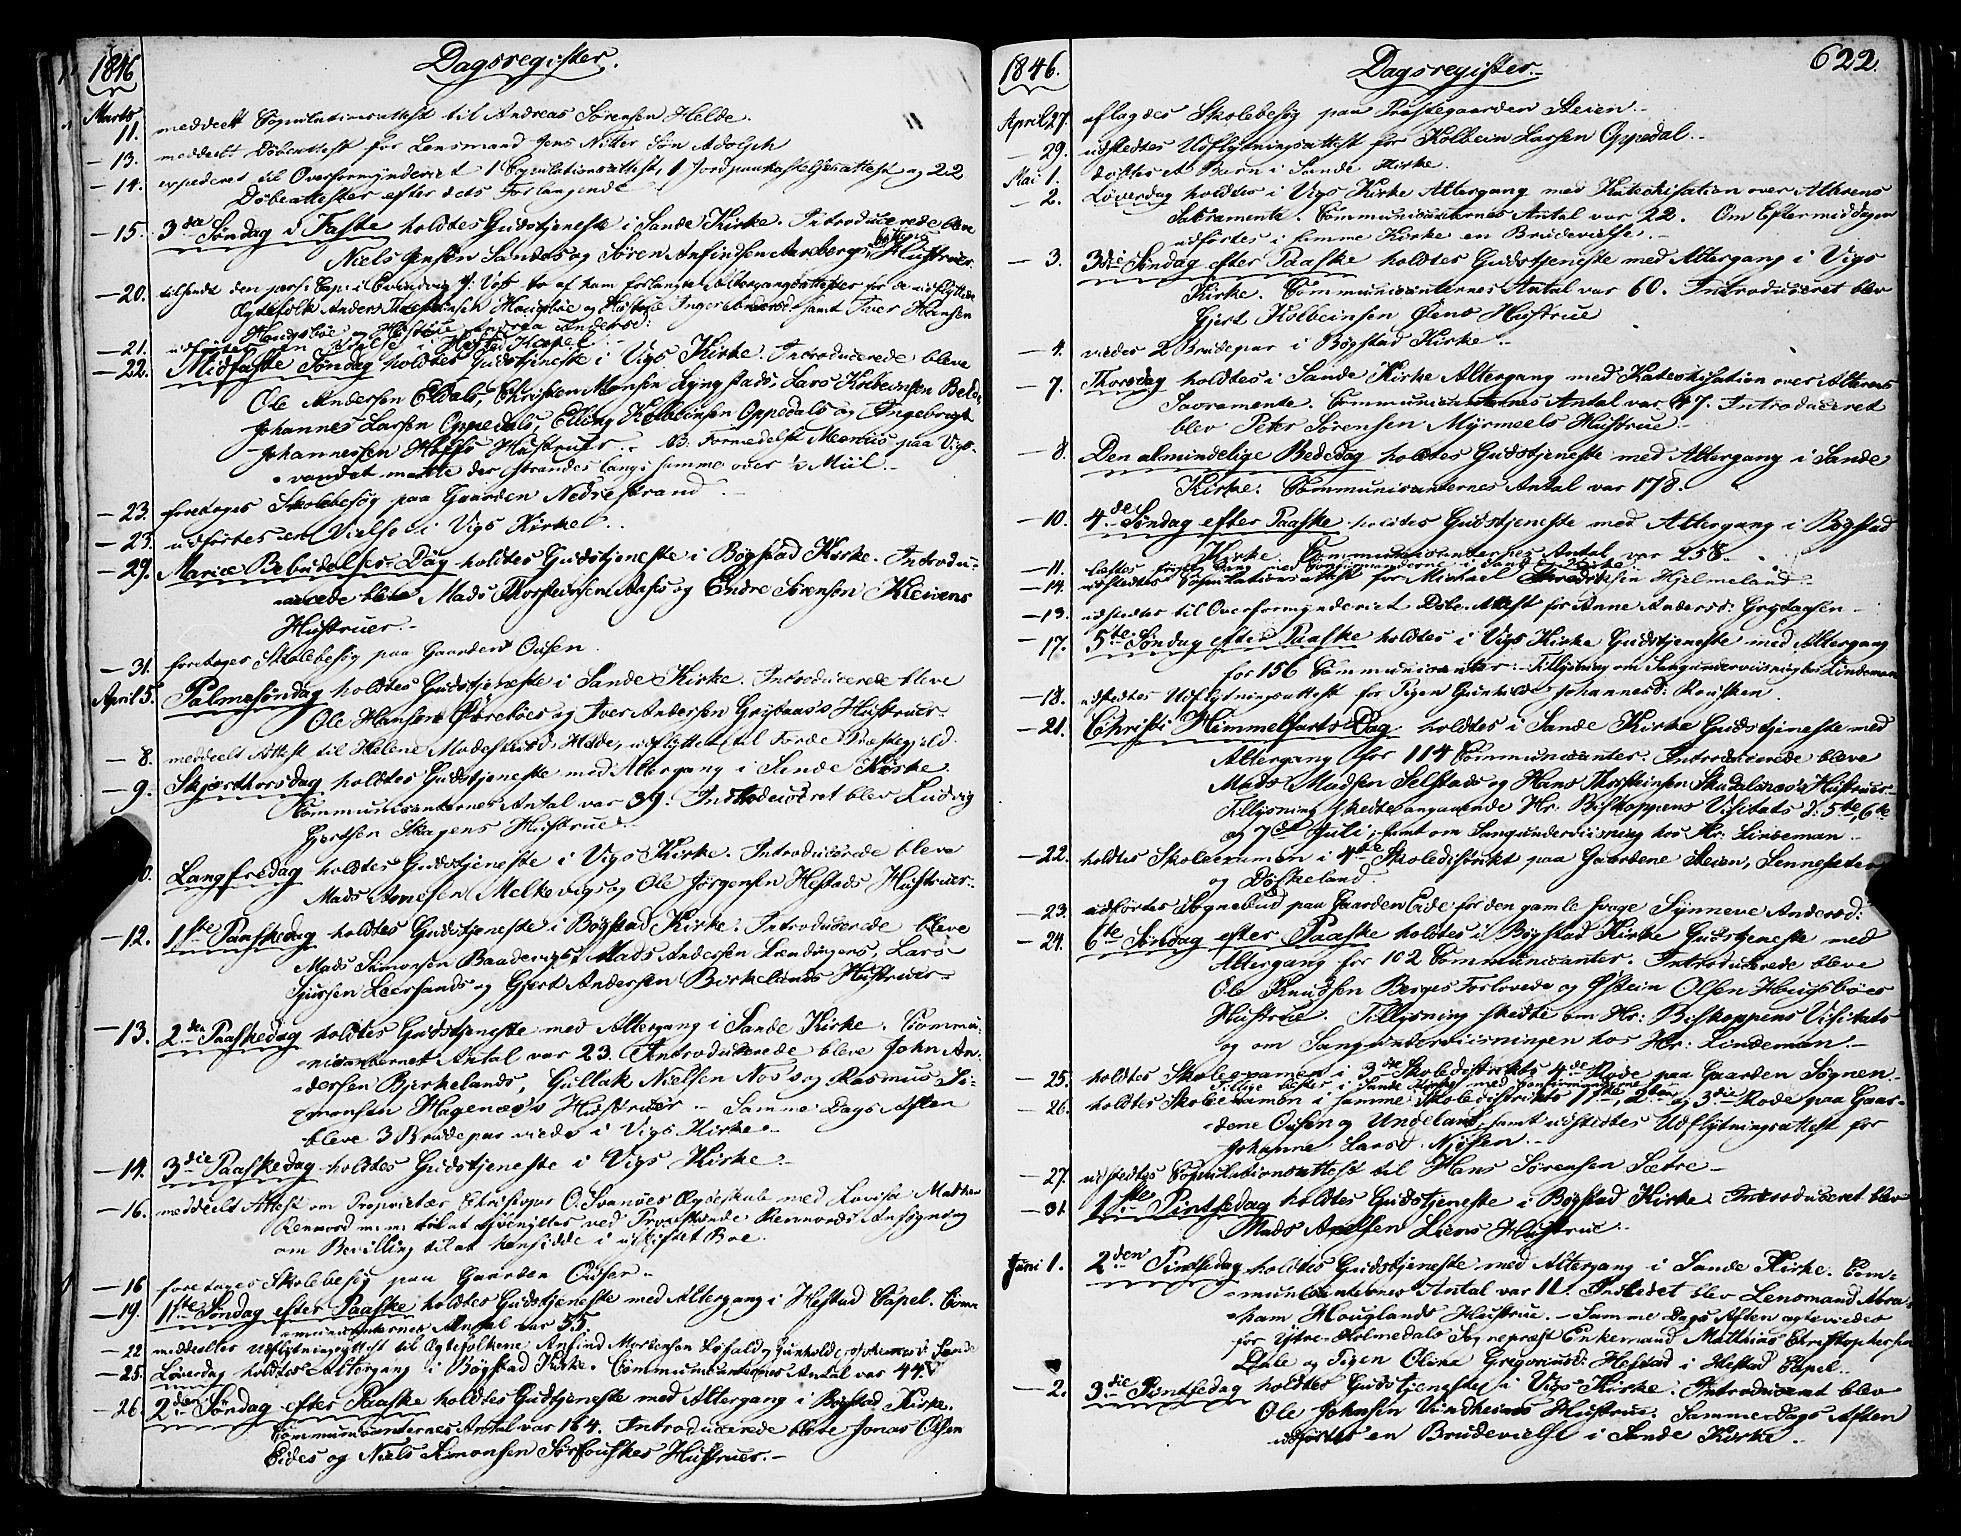 1846
Dagsregister.
Marts
11. meddeelt Copulationsattest til Andreas Sørensen Helde.
— 13. meddeelt Døbeattest for Lensmand Jens Nitter Søn Adolph
— 14. expederet til Overformynderiet 1 Copulationsattest, 1 Jordpaakastelsesattest og 22
Døbeattester efter dets Forlangende
— 15. 3die Søndag i Faste holdtes Gudstjeneste i Sande Kirke. Introducerede bleve
Niels Jensen Sandes og Søren Anfindsen Aarberg Hustruer.
— 20. tilsendt den pers: Cap: i Evindvig Voss to af ham forlangte Altergangsattester for de udflyttede
Ægtefolk Anders Thorsteinsen Hougsbøe og Hustrue Inger Andersd: samt Iver Hansen
Hougsbøe og Hustrue Andersd:
— 21. udførtes en Vielse i Hestad Kapel
— 22. Midfaste Søndag holdtes Gudstjeneste i Vigs Kirke. Introducerede bleve
Ole Andersen Eldals, Christen Monsen Lyngstads, Lars Kolbeinsen
Johannes Larsen Oppedals, Elling Kolbeinsen Oppedals og Ingebrigt
Johannesen Hoffs Hustruer. — B. Formedelst Meeniis paa Vigs-
vandet maatte der strandes langs samme over ½ Miil.
— 23. foretoges Skolebesøg paa Gaarden Nedrestrand.
— 23. udførtes en Vielse i Vigs Kirke.
— 29. Mariæ Bebudelses-Dag holdtes Gudstjeneste i Bøgstad Kirke. Introdu-
cerede bleve Mads Thorsteinsen Aases og Endre Sørensen Kleivens
Hustruer.
— 31. foretoges Skolebesøg paa Gaarden Ousen.
April 5. Palmesøndag holdtes Gudstjeneste i Sande Kirke. Introducerede bleve
Ole Hansen og Iver Andersen Hustruer.
— 8. meddeelt Attest til Helene Madsd: Helde, udflyttet til Førde Præstegjeld.
— 9. Skjærthorsdag holdtes Gudstjeneste med Altergang i Sande Kirke.
Communicanternes Antal var 39. Introduceret blev Ludvig
Gjertsen Skagens Hustrue.
0. Langfredag holdtes Gudstjeneste i Vigs Kirke. Introducerede bleve
Mads Arnesen Melkevigs og Ole Jørgensen Hestads Hustruer.
— 12. 1ste Paaskedag holdtes Gudstjeneste i Bøgstad Kirke. Introducerede bleve
Mads Simonsen Baadevigs, Mads Andersen Lendingers, Lars
Sjursen Leersands og Gjert Andersen Birkelands Hustruer.
— 13. 2den Paaskedag holdtes Gudstjeneste med Altergang i Sande Kirke. Commu-
nicanternes Antal var 23. Introducerede bleve John An-
dersen Bjerkelands, Gullak Nielsen Nos's og Rasmus Si-
monsen Hagenæs's Hustruer — Samme Dags Aften
bleve 3 Brudepar viede i Vigs Kirke.
— 14. 3die Paaskedag holdtes Gudstjeneste i Vigs Kirke.
— 16. meddeelt Attest om Proprietær Christopher O. Svanøes Ægteskab med Lovise Mathea
Rennord m.m. til at benyttes ved Rennords Ansøgning
om Bevilling til at hensidde i uskiftet Boe.
— 16 foretoges Skolebesøg paa Gaarden Ousen.
— 19. 1ste Søndag efter Paaske holdtes Gudstjeneste med Altergang i Hestad Capel. Com-
municanternes Antal var 55
— 22 meddeeltes Udflytningsattest til Ægtefolkene Anfind Mortensen og Gunhild i Sande
— 25. Løverdag holdtes Altergang i Bøgstad Kirke. Communicanternes Antal var 44.
— 26. 2den Søndag efter Paaske holdtes Gudstjeneste med Altergang i Bøgstad Kirke.
Communicanternes Antal var 164. Introducerede bleve Jonas Olsen
Eides og Niels Simonsen Hustruer.
1846.
Dagsregister.
622.
April 27. aflagdes Skolebesøg paa Præstegaarden Steien.
— 29. udstedtes Udflytningsattest for Kolbein Larsen Oppedal.
Mai 1. døbtes et Barn i Sande Kirke.
— 2. Løverdag holdtes i Vigs Kirke Altergang med Katechisation over Altrens
Sacramente. Communicanternes Antal var 22. Om Eftermiddagen
udførtes i samme Kirke en Brudevielse.
— 3. 3die Søndag efter Paaske holdtes Gudstjeneste med Altergang i Vigs
Kirke. Communicanternes Antal var 60. Introduceret blev
Gjert Kolbeinsen Øens Hustrue
— 4. viedes 2 Brudepar i Bøgstad Kirke.
— 7. Thorsdag holdtes i Sande Kirke Altergang med Katechisation over Alterens
Sacramente. Communicanternes Antal var 47. Introduceret
blev Peter Sørensen Myrmeels Hustrue
— 8. Den almindelige Bededag holdtes Gudstjeneste med Altergang i Sande
Kirke. Communicanternes Antal var 178.
— 10. 4de Søndag efter Paaske holdtes Gudstjeneste med Altergang i Bøgstad
Kirke. Communicanternes Antal var 258.
— 11. læstes første Gang med Confirmanderne i Sande Kirke.
— 14. udstedtes Copulationsattest for Michael Hjelmeland.
— 13. udstedtes til Overformynderiet Døbe-Attest for Anne Andersd:
— 17. 5te Søndag efter Paaske holdtes i Vigs Kirke Gudstjeneste med Altergang
for 156 Communicanter. Tillysning om Sangunderviisning hos Lindeman
— 18. udstedtes Udflytningsattest for Pigen Gunhilde Johannesd: Rousken.
— 21. Christi Himmelfarts-Dag holdtes i Sande Kirke Gudstjeneste med
Altergang for 114 Communicanter. Introducerede bleve
Mads Madsen Selstads og Hans Thorsteinsen Skudalsnæs's Hustruer.
Tillysning skedte angaaende Hr. Biskoppens Visitats d: 5te, 6te
og 7de Juli, samt om Sangunderviisning hos Hr: Lindeman
— 22. holdtes Skoleexamen i 4de Skoledistrikt paa Gaardene Steien, Senneseter
og Døskeland.
— 23. udførtes Sognebud paa Gaarden Eide for den gamle svage Synneve Andersd:
— 24. 6te Søndag efter Paaske holdtes i Bøgstad Kirke Gudstjeneste med
Altergang for 102 Communicanter. Introducerede bleve
Ole Knudsen Berges Forlovede og Østein Olsen Hougsbøes
Hustrue. Tillysning skedte om Hr: Biskoppens Visitats
og om Sangunderviisningen hos Hr: Lindeman.
— 25. holdtes Skoleexamen i 3die Skoledistrikts 4de Rode paa Gaarden Sognen.
Tillige læstes i Sande Kirke med Confirmanderne
— 26. holdtes Skoleexamen i samme Skoledistrikts 1ste, 2den og 3die Rode paa Gaar-
dene Ousen og Undeland, samt udstedtes Udflytningsattest for
Johanne Larsd: Njøsen.
— 27. udstedtes Copulationsattest til Hans Sørensen Sætre
— 31 1ste Pintsedag holdtes Gudstjeneste i Bøgstad Kirke. Introduceret blev
Mads Axelsen Liens Hustrue.
Juni 1. 2den Pintsedag holdtes Gudstjeneste med Altergang i Sande Kirke. Com-
municanternes Antal var 11. Indledet blev Lensmand Abra-
ham Houglands Hustrue. — Samme Dags Aften ægteviedes
for Ytre-Holmedals Sognepræst Enkemand Matthias Christophersen
Dale og Pigen Oline Gregoriusd: Hestad i Hestad Capel.
— 2. 3die Pintsedag holdtes Gudstjeneste i Vigs Kirke. Introduceret blev
Ole Johnsen Vindheims Hustrue. Sammedags Aften
udførtes en Brudevielse i Sande Kirke.